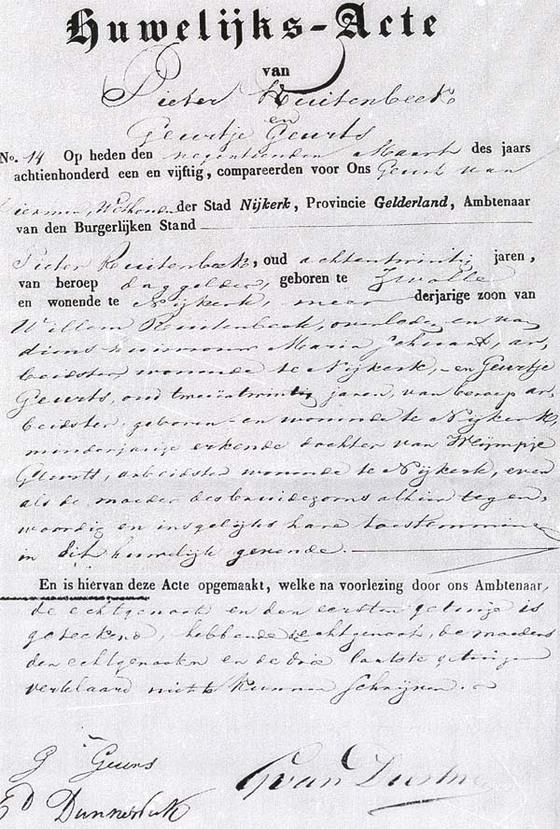 Huwelijks-Acte
van
Pieter Ruitenbeek
en
Geurtje Geurts
No. 14 Op heden den negentienden Maart des jaars
achtienhonderd een en vijftig, compareerden voor Ons Geurt van
Diermen, Wethouder der Stad Nijkerk, Provincie Gelderland, Ambtenaar
van den Burgerlijken Stand
Pieter Ruitenbeek, oud achtentwintig jaren,
van beroep daggelder, geboren te Zwolle
en wonende te Nijkerk, meerderjarige zoon van
Willem Ruitenbeek, overleden en van
diens Maria Schwaat, ar,
beidster, wonende te Nijkerk, en Geurtje
Geurts, oud tweeëntwintig jaren, van beroep ar,
beidster, geboren en wonende te Nijkerk,
minderjarige erkende dochter van Weijmpje
Geurts, arbeidster wonende te Nijkerk, even
als de moeder des bruidegoms alhier tegen,
woordig en insgelijks hare toestemming
in dit huwelijk gevende.
En is hiervan deze Acte opgemaakt, welke na voorlezing door ons Ambtenaar,
de echtgenoot en den eersten getuige is
geteekend, hebbende de echtgenoot, de moeders
der echtgenooten en de drie laatste getuigen
verklaard niet te kunnen schrijven.
G Geurs